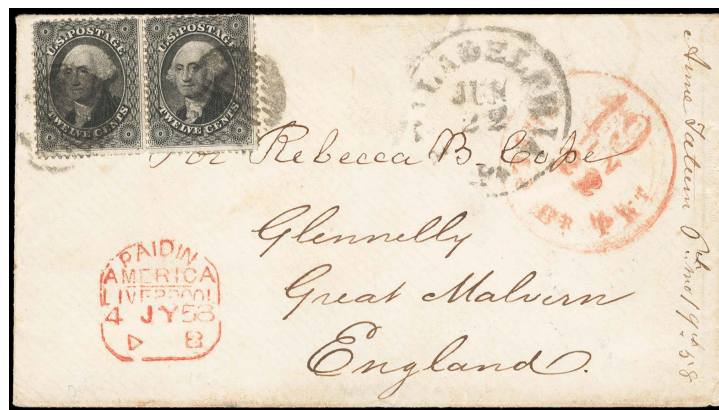 U.S. POSTAGE
TWELVE CENTS
U.S. POSTAGE
TWELVE CENTS
PHILADELPHIA
JUN
22
19
22
BR. PKT
For Rebecca B. Cope
Glennelly
Great Malvern
England.
PAID IN
AMERICA
LIVERPOOL
4 JY 58
8
Anne Tatum 6th mo 19th 58